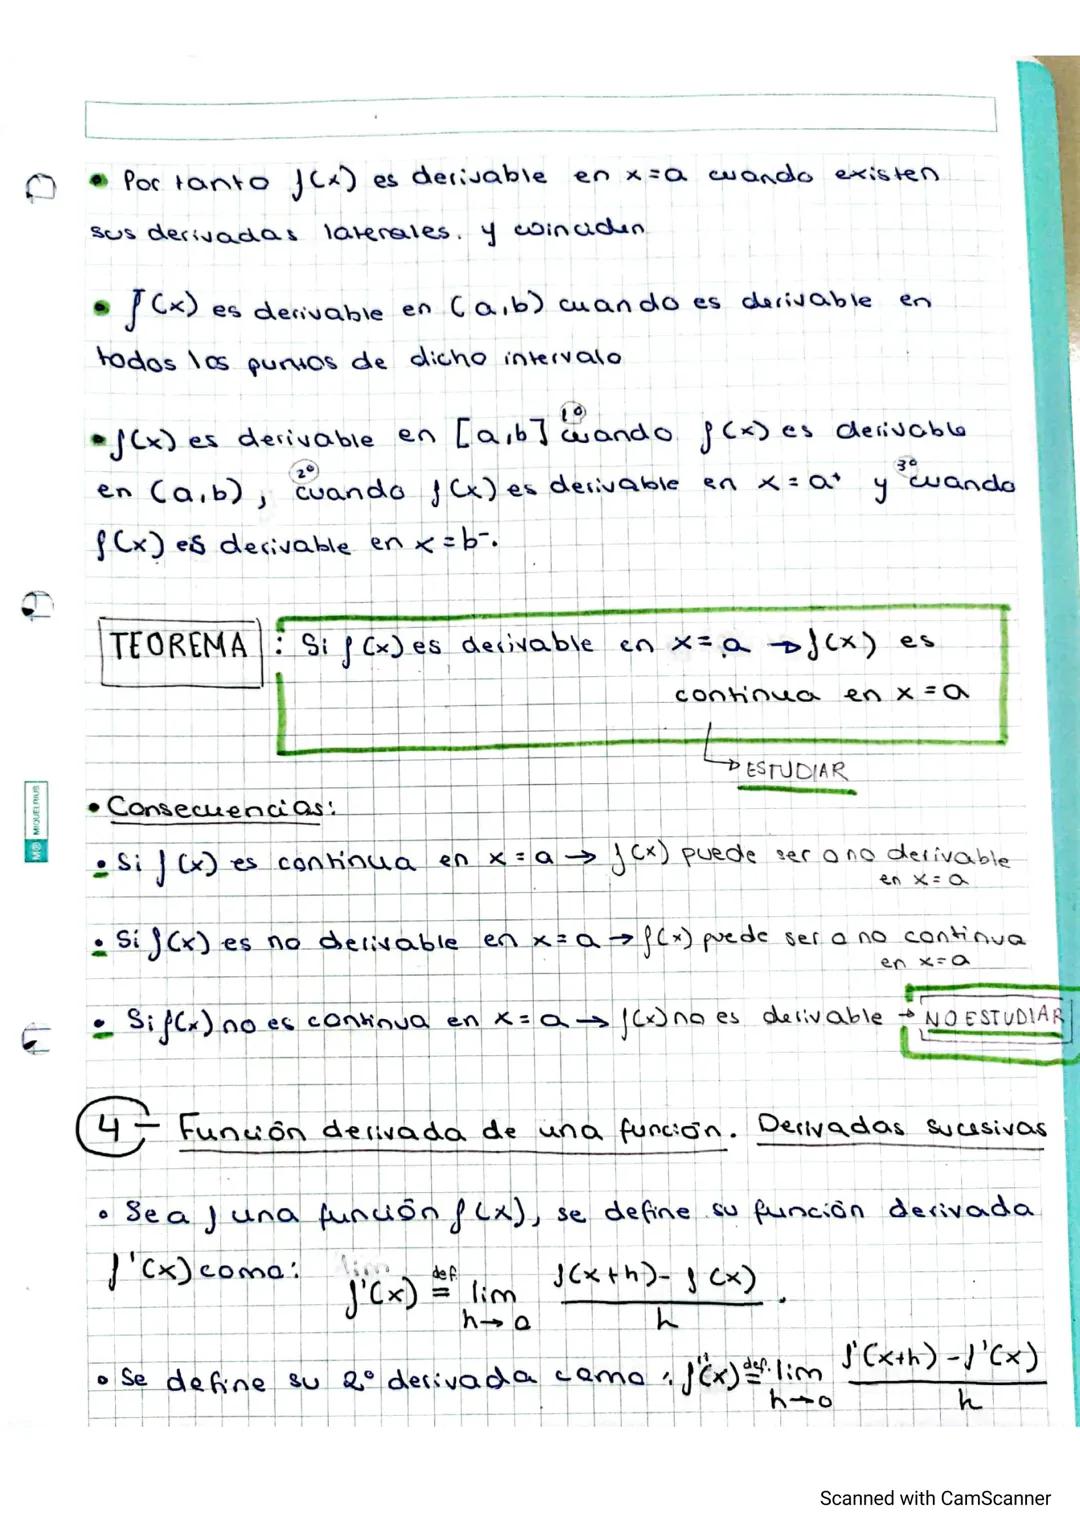 • Por tanto f(x) es derivable en x=a cuando existen
sus derivadas laterales. y coinciden
• f(x) es derivable en (a,b) cuando es derivable en
todos los puntos de dicho intervalo
• f(x) es derivable en [a,b] 1º cuando f(x) es derivable
en (a,b), 2º cuando f(x) es derivable en x=a⁺ y 3º cuando
f(x) es derivable en x=b⁻.
TEOREMA : Si f(x) es derivable en x=a → f(x) es
continua en x=a
→ ESTUDIAR
• Consecuencias:
• Si f(x) es continua en x=a → f(x) puede ser o no derivable
en x=a
• Si f(x) es no derivable en x=a → f(x) puede ser o no continua
en x=a
• Si f(x) no es continua en x=a → f(x) no es derivable → NO ESTUDIAR
4- Función derivada de una función. Derivadas sucesivas
• Sea f una función f(x), se define su función derivada
f'(x) como: lim f'(x) =def. lim h→0 f(x+h)-f(x) / h .
• Se define su 2º derivada como : f''(x) =def. lim h→0 f'(x+h)-f'(x) / h
MIQUELRIUS
Scanned with CamScanner